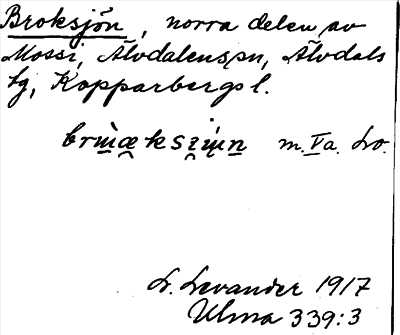 Broksjön, norra delen av
Mossi, Älvdalens sn, Älvdals
tg, Kopparbergs l.
m. Va. Lvo.
L. Levander 1917
Ulma 339:3